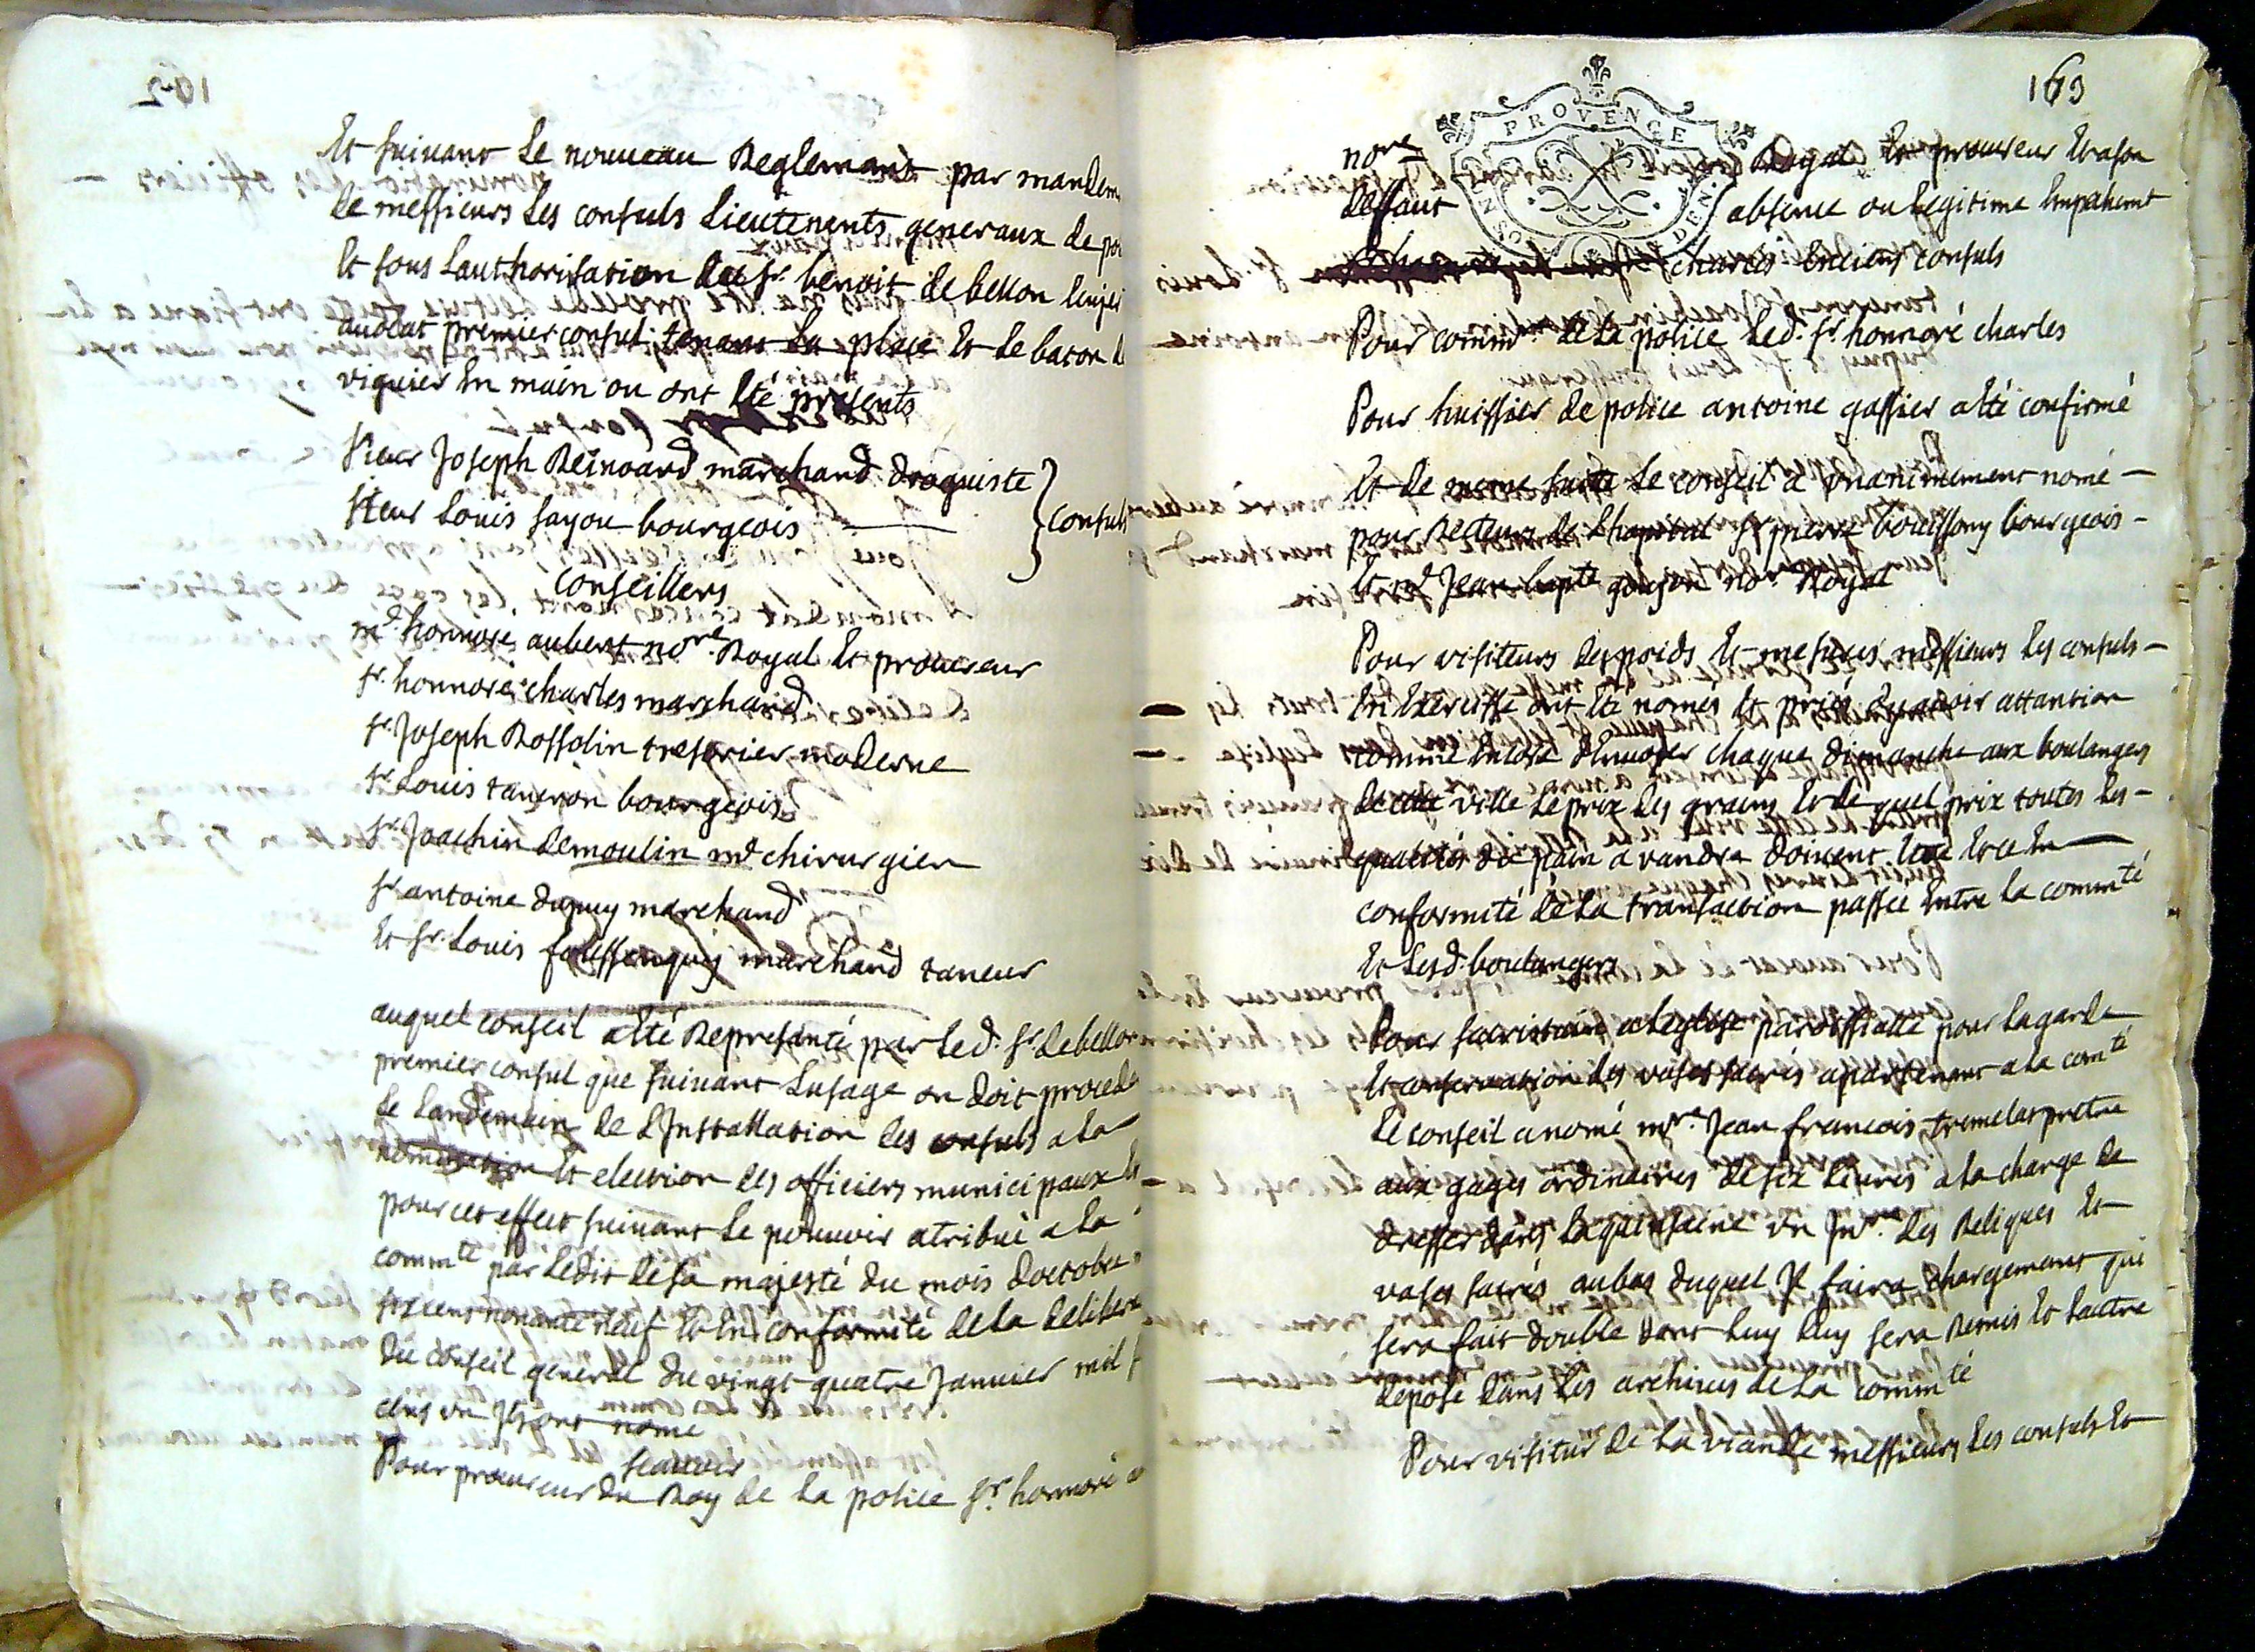 Et suivant le nouveau Reglemant par mandem
de messieurs les consuls lieutenents generaux de po
Et sous lauthorisation du sr. benoit de bellon
avocat premier consul tenant la place Et le baton d
viguier En main ou ont Eté présents
sieur Joseph Reinoard marchand droguiste
sieur Louis fayou bourgeois
consuls
conseillers
me. honnore aubert nore. Royal Et procureur
sr. honnoré charles marchand
sr. Joseph Rossolin tresorier moderne
sr. Louis taneron bourgeois
sr. Joachin demoulin me chirurgien
sr antoine dupuy marchand
Et sr. Louis marchand taneur
auquel conseil a Eté Represanté par led. sr. de bellon
premier consul que suivant lusage on doit procede
le landemain de LInstallation des consuls a la
nomination Et election des officiers municipaux Et
pour cet effect suivant le pouvoir atribué a la
commté par ledit de sa majesté du mois doctobre
six cent nonante neuf Et En conformité de la delibera
du conseil general du vingt quatre Janvier mil s
cens un Ils ont nomé
scavoir
Pour procureur du Roy de la police sr. honnoré a
163
PROVENCE
nore Royal Et procureur Et a son
deffaut absence ou legitime Empachemt
charles Enciens consuls
Pour commre. de la police led. sr. honnoré charles
Pour huissier de police antoine gassier a Eté confirmé
Et de meme suitte le conseil a Unanimement nomé
pour Recteurs de Lhopital sr pierre bouissony bourgeois
Et me Jean bapte goujon nore Royal
Pour visiteurs des poids Et mesures messieurs les consuls
En Exercisse ont Eté només Et priés dy avoir attantion
comme Encore denvoyer chaque dimanche aux boulangers
de cette ville le prix des grains Et de quel prix toutes les
qualités de pain a vandre doivent Etre Et ce En
conformité de la transaction passée Entre la commté
Et lesd. boulangers
Pour sacristain a leglise paroissialle pour la garde
Et conservation des vases sacrés apartenant a la comté
le conseil a nomé mre. Jean francois tremelat pretre
aux gages ordinaires de six livres a la charge de
dresser dans la quinsaine un Inre. des Reliques Et
vases sacrés aubas duquel Il faira chargemant qui
sera fait double dont luy luy sera Remis Et lautre
deposé dans les archives de la commté
Pour visitur de la viande messieurs les consuls Et